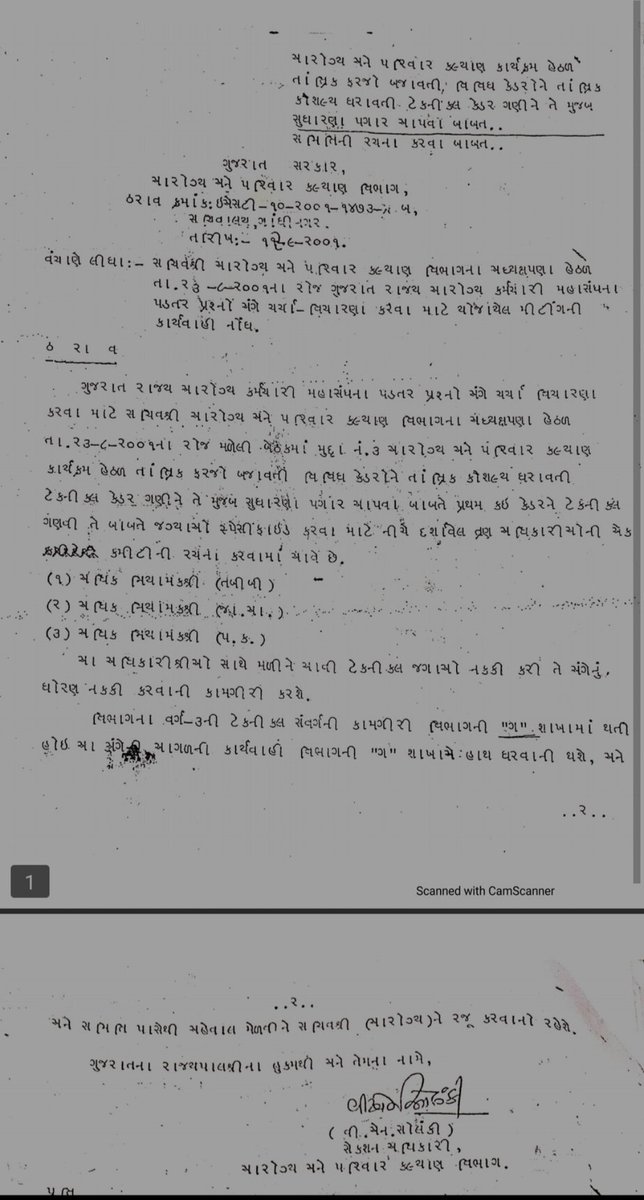 આરોગ્ય અને પરિવાર કલ્યાણ કાર્યક્રમ હેઠળ
તાંત્રિક ફરજો બજાવતી, વિવિધ કેડરોને તાંત્રિક
કૌશલ્ય ધરાવતી ટેકનીકલ કેડર ગણીને તે મુજબ
સુધારણા પગાર આપવા બાબત..
સમિતિની રચના કરવા બાબત..
ગુજરાત સરકાર,
આરોગ્ય અને પરિવાર કલ્યાણ વિભાગ,
ઠરાવ ક્રમાંક:ઇએસટી-૧૦-૨૦૦૧-૧૪૭૩-બ,
સચિવાલય,ગાંધીનગર.
તારીખ:- -૯-૨૦૦૧.
વંચાણે લીધા:- સચિવશ્રી આરોગ્ય અને પરિવાર કલ્યાણ વિભાગના અધ્યક્ષપણા હેઠળ
તા.૨૩-૮-૨૦૦૧ના રોજ ગુજરાત રાજ્ય આરોગ્ય કર્મચારી મહાસંઘના
પડતર પ્રશ્નો અંગે ચર્ચા-વિચારણા કરવા માટે યોજાયેલ મીટીંગની
કાર્યવાહી નોંધ.
ઠ રા વ
ગુજરાત રાજ્ય આરોગ્ય કર્મચારી મહાસંઘના પડતર પ્રશ્નો અંગે ચર્ચા વિચારણા
કરવા માટે સચિવશ્રી આરોગ્ય અને પરિવાર કલ્યાણ વિભાગના અધ્યક્ષપણા હેઠળ
તા.૨૩-૮-૨૦૦૧ના રોજ મળેલી બેઠકમાં મુદ્દા નં.૩ આરોગ્ય અને પરિવાર કલ્યાણ
કાર્યક્રમ હેઠળ તાંત્રિક ફરજો બજાવતી વિવિધ કેડરોને તાંત્રિક કૌશલ્ય ધરાવતી
ટેકનીકલ કેડર ગણીને તે મુજબ સુધારણા પગાર આપવા બાબતે પ્રથમ કઇ કેડરને ટેકનીકલ
ગણવી તે બાબતે જગ્યાઓ સ્પેસીફાઇડ કરવા માટે નીચે દર્શાવેલ ત્રણ અધિકારીઓની એક
કમીટીની રચના કરવામાં આવે છે.
(૧) અધિક નિયામકશ્રી (તબીબી)
(૨) અધિક નિયામકશ્રી (જા.આ.)
(૩) અધિક નિયામકશ્રી (પ.ક.)
આ અધિકારીશ્રીઓ સાથે મળીને આવી ટેકનીકલ જગાઓ નકકી કરી તે અંગેનું
ધોરણ નકકી કરવાની કામગીરી કરશે.
વિભાગના વર્ગ-૩ની ટેકનીકલ સંવર્ગની કામગીરી વિભાગની "ગ" શાખામાં થતી
હોઇ આ અંગેની આગળની કાર્યવાહી વિભાગની "ગ" શાખાએ હાથ ધરવાની થશે, અને
..૨..
1
Scanned with CamScanner
..૨..
અને સમિતિ પાસેથી અહેવાલ મેળવીને સચિવશ્રી (આરોગ્ય)ને રજૂ કરવાનો રહેશે.
ગુજરાતના રાજ્યપાલશ્રીના હુકમથી અને તેમના નામે,
(વી.એન.સોલંકી)
સેકશન અધિકારી,
આરોગ્ય અને પરિવાર કલ્યાણ વિભાગ.